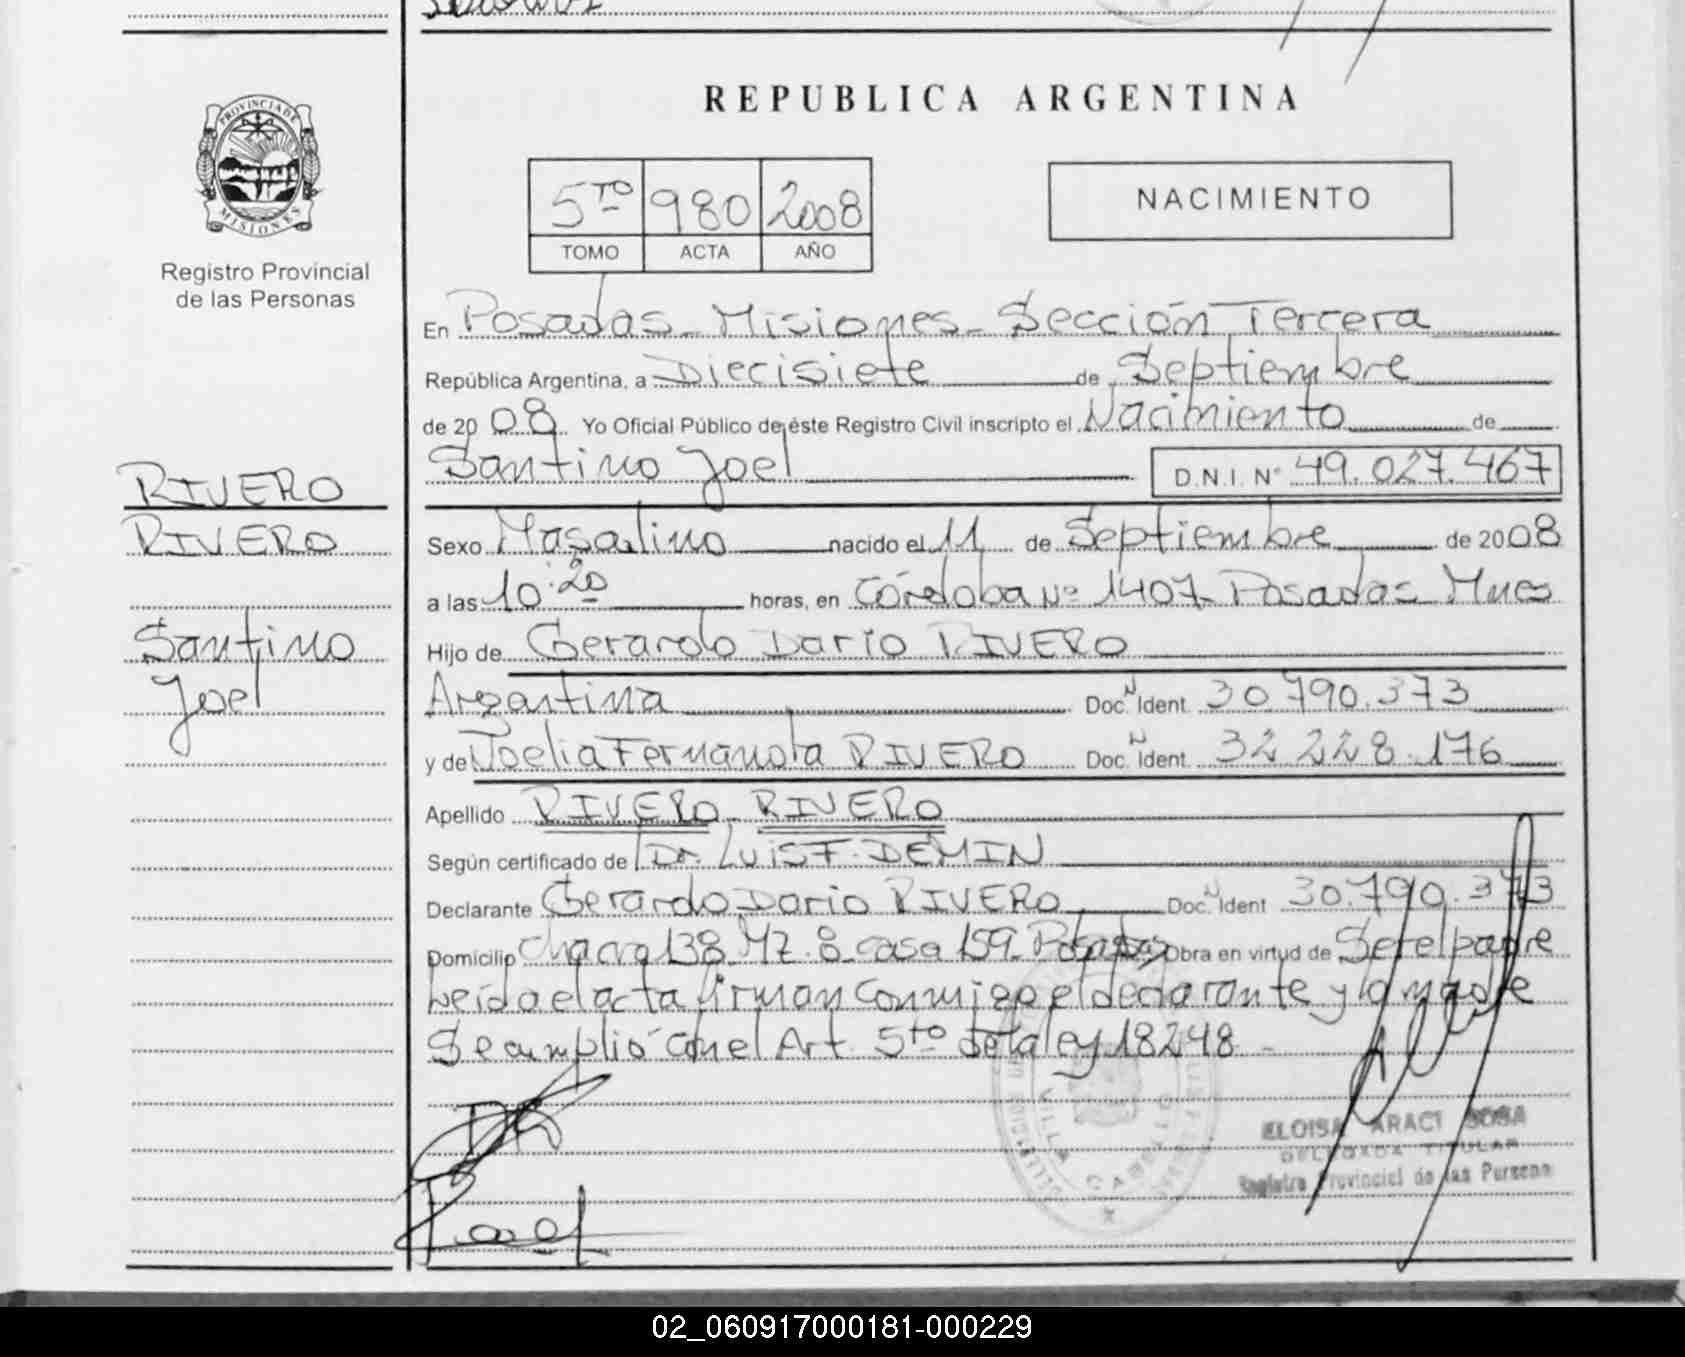 REPUBLICA ARGENTINA
PROVINCIA DE
MISIONES
Registro Provincial
de las Personas
5TO 980 2008
TOMO ACTA AÑO
NACIMIENTO
En Posadas - Misiones - Sección Tercera
República Argentina, a Diecisiete de Septiembre
de 2008 Yo Oficial Público de éste Registro Civil inscripto el Nacimiento de
Santino Joel D.N.I. Nº 49.027.467
RIVERO
RIVERO
Santino
Joel
Sexo Masculino nacido el 11 de Septiembre de 2008
a las 10:20 horas, en Córdoba Nº 1407 - Posadas Mnes
Hijo de Gerardo Dario RIVERO
Argentina Doc. N Ident. 30.790.373
y de Noelia Fernanda RIVERO Doc. N Ident. 32.228.176
Apellido RIVERO - RIVERO
Según certificado de Dr. LUIS F. DEMIN
Declarante Gerardo Dario RIVERO Doc. N Ident 30.790.373
Domicilio Chacra 138 MZ. 8 casa 159 - Posadas Obra en virtud de Ser el padre
Leída el acta firman conmigo el declarante y la madre
Se amplió con el Art. 5to de la ley 18248 -
VILLA CABELLO
ELOISA ARACI SOSA
DELEGADA TITULAR
Registro Provincial de las Personas
02_060917000181-000229